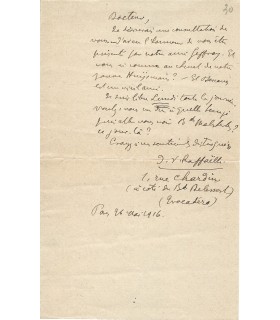 30
Docteur,
Je désirerai une consultation de
vous. J'avais l'honneur de vous être
présenté par notre ami Geffroy. Et
nous a comme au chevet de notre
Huijsmans ? - Et Clemenceau
est un vieil ami.
Je suis libre Lundi toute la journée,
voulez-vous me dire à quelle heure
je puis aller vous voir Bd Malesherbes
ce jour-là ?
Croyez mes sentiments distingués
J. F. Raffaëlli
1, rue Chardin
(à côté du Bd Delessert)
(Trocadéro)
Paris 26 Mai 1916.